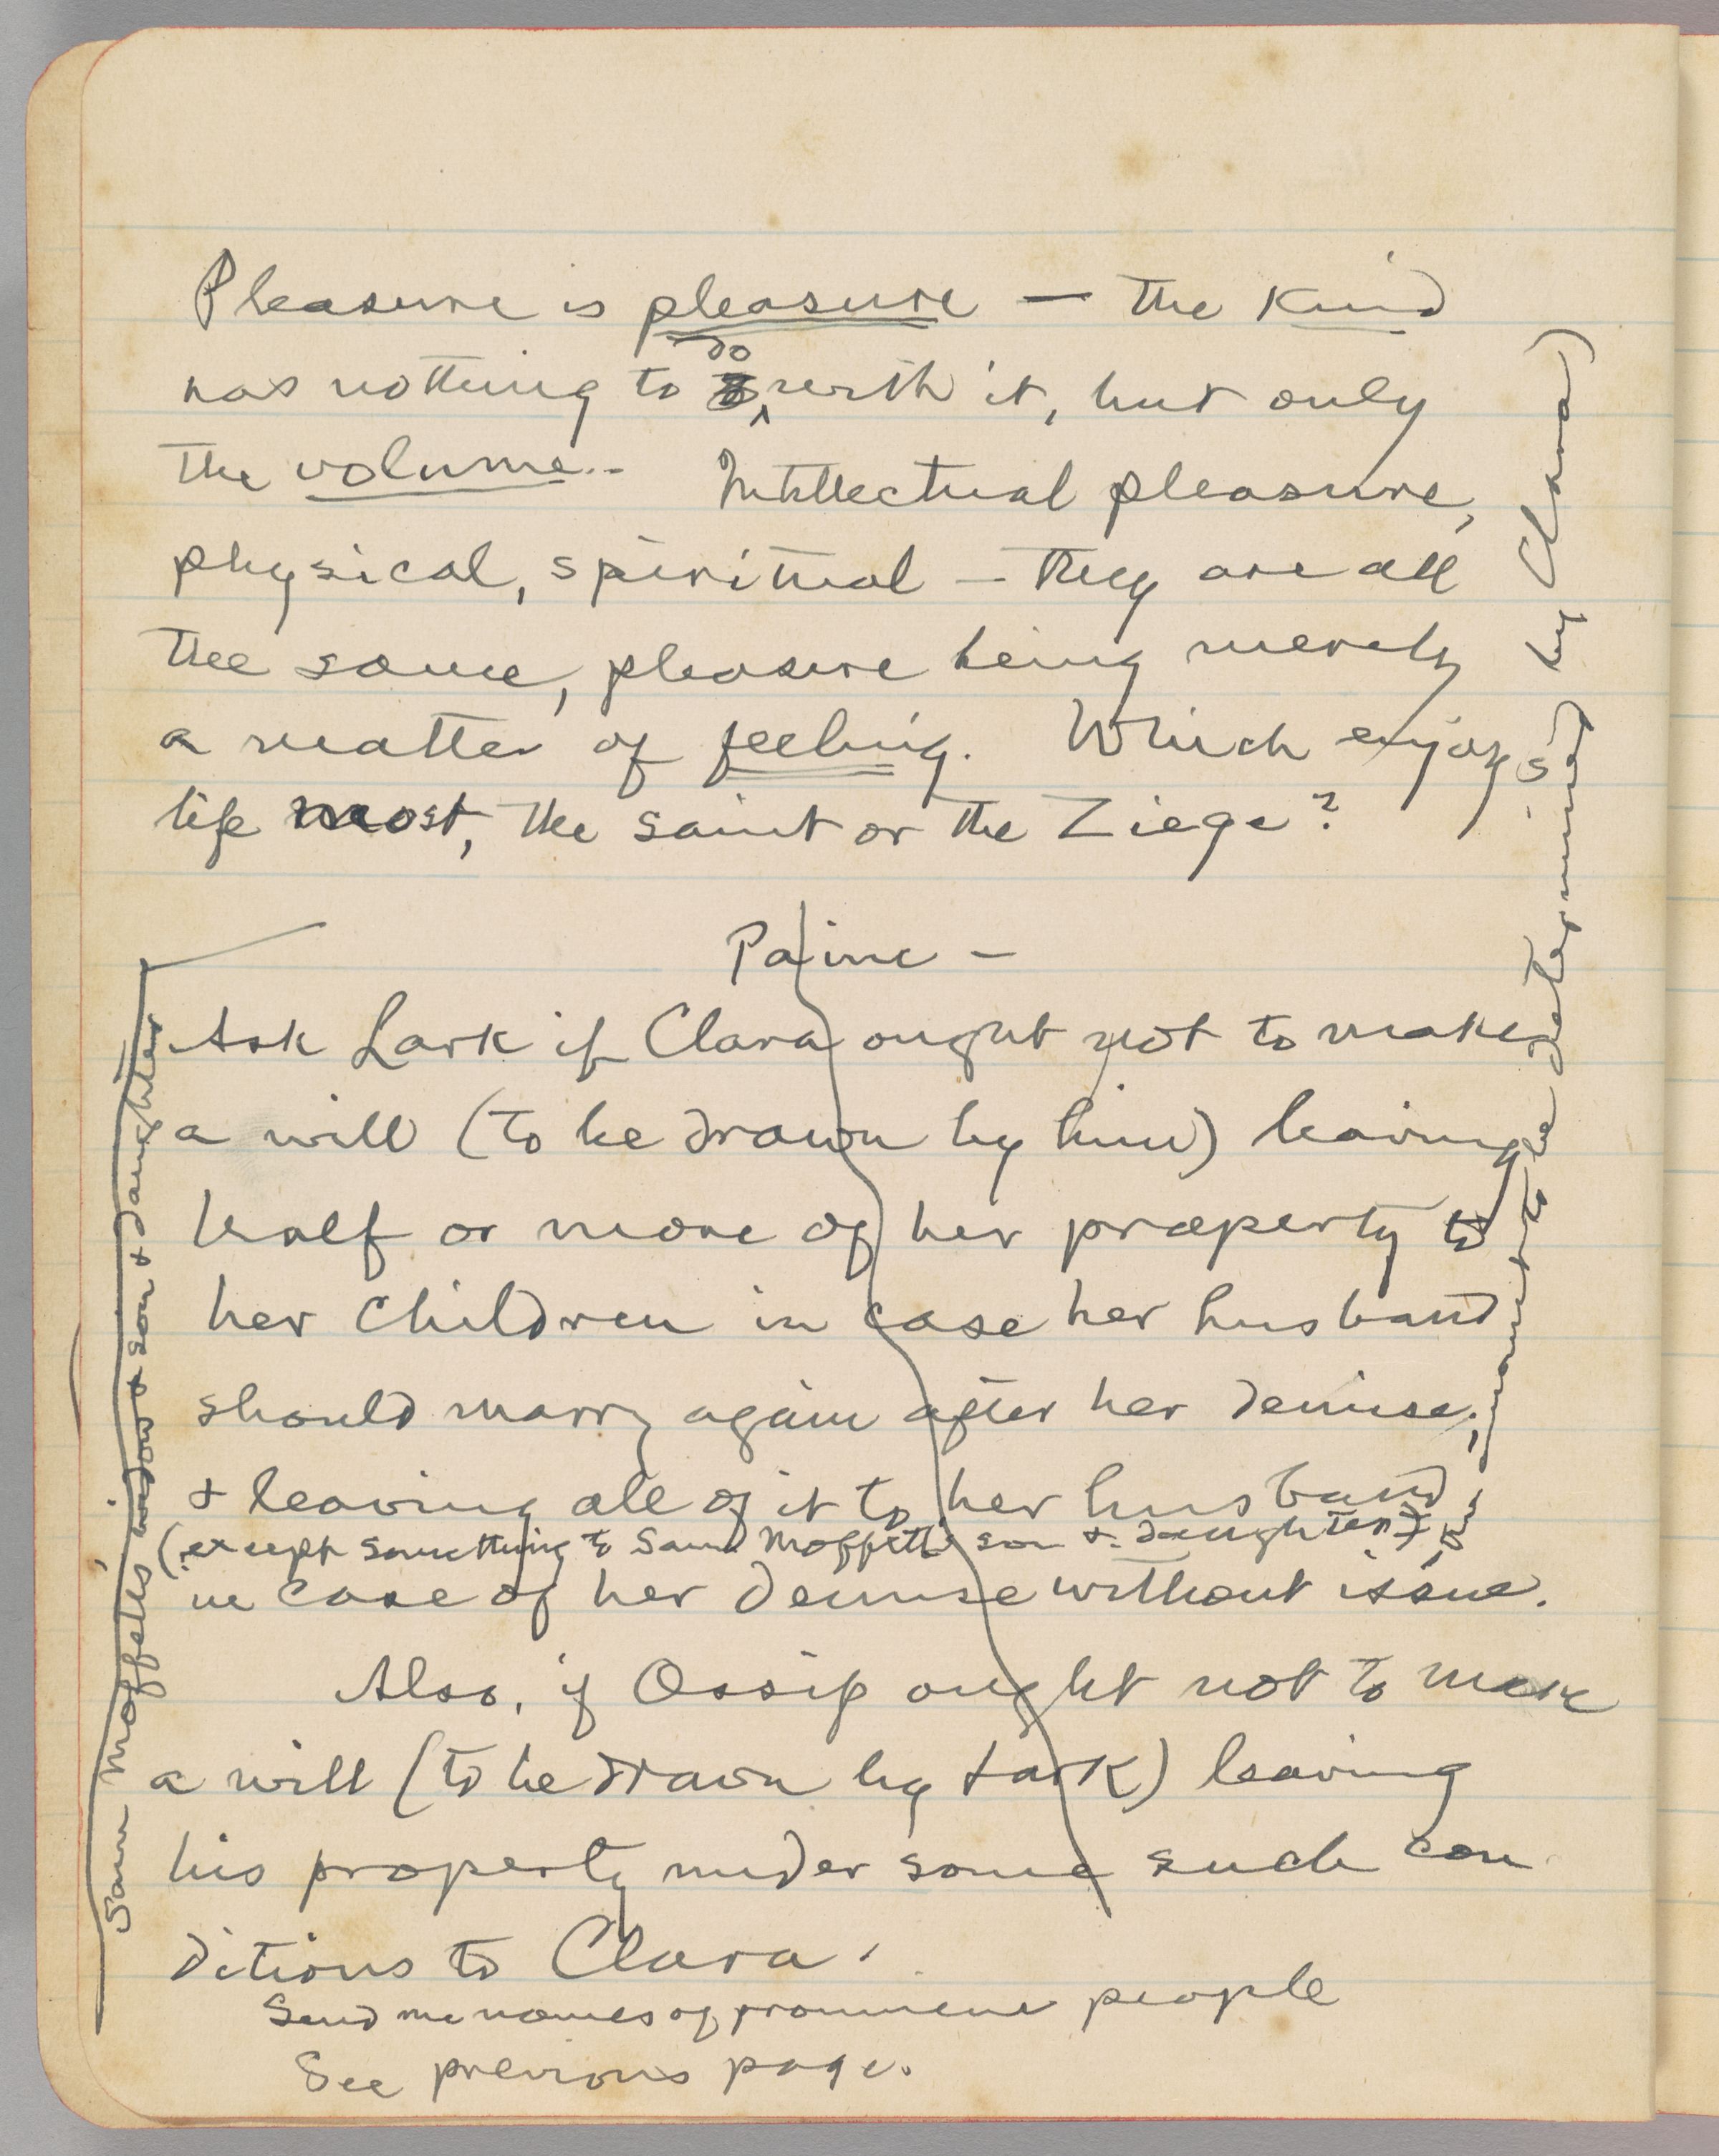 Pleasure is pleasure — the kind
has nothing to do with it, but only
the volume. Intellectual pleasure,
physical, spiritual — they are all
the same, pleasure being merely
a matter of feeling. Which enjoys
life most, the saint or the Ziege?
Paine —
Ask Lark if Clara ought not to make
a will (to be drawn by him) leaving
half or more of her property to
her children in case her husband
should marry again after her demise;
& leaving all of it to her husband
(except something to Sam Moffett's son & daughter)
in case of her demise without issue.
Also, if Ossip ought not to make
a will (to be drawn by Lark) leaving
his property under some such con
ditions to Clara.
Send me names of prominent people
See previous page.
Sam Moffett's widow & son & daughter
amount to be determined by Clara)